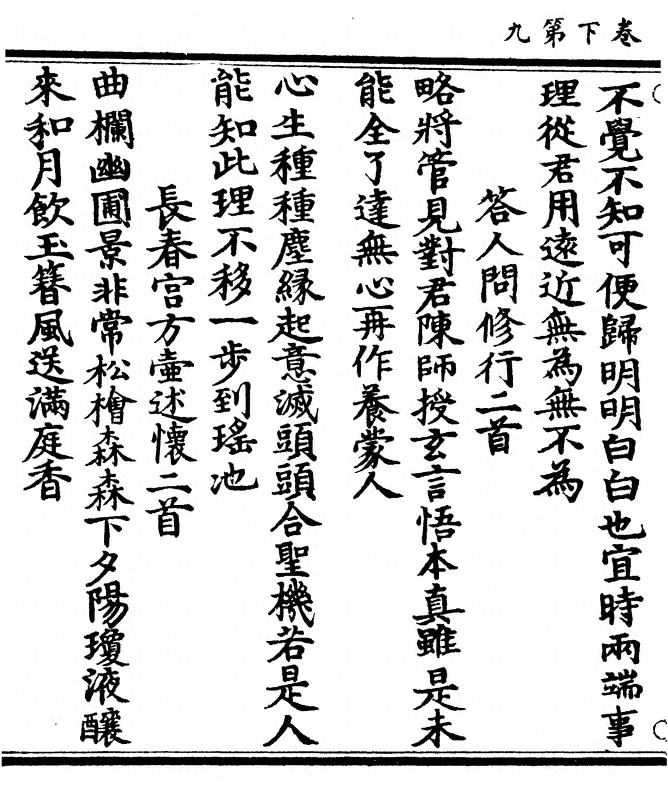 卷下第九
不覺不知可便歸明明白白也宜時兩端事
理從君用遠近無為無不為
答人問修行二首
略將管見對君陳師授玄言悟本真雖是未
能全了達無心再作養蒙人
心生種種塵緣起意滅頭頭合聖機若是人
能知此理不移一步到瑤池
長春宮方壺述懷二首
曲欄幽圃景非常松檜森森下夕陽瓊液釀
來和月飲玉簪風送滿庭香